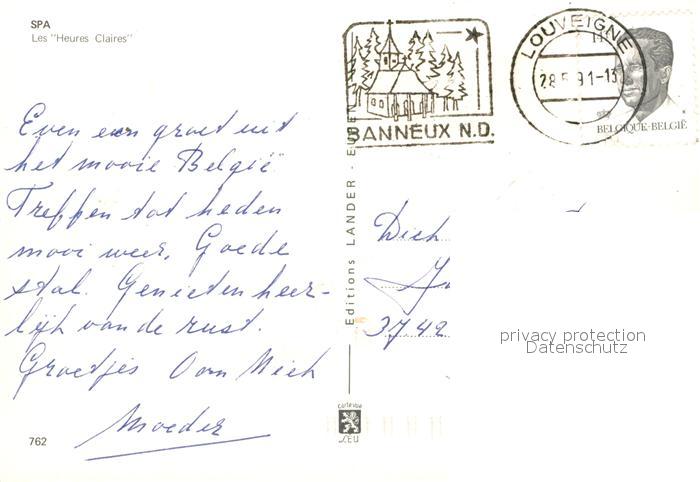 SPA
Les "Heures Claires"
LOUVEIGNE
28 5 91-13
BANNEUX N.D.
BELGIQUE-BELGIË
Even een groet uit
het mooie België
Treffen tot heden
mooi weer. Goede
stal. Genieten heer-
lijk van de rust.
Groetjes Oom Wieh
Moeder
762
Editions LANDER - EUPEN
Dieh
3742
privacy protection
Datenschutz